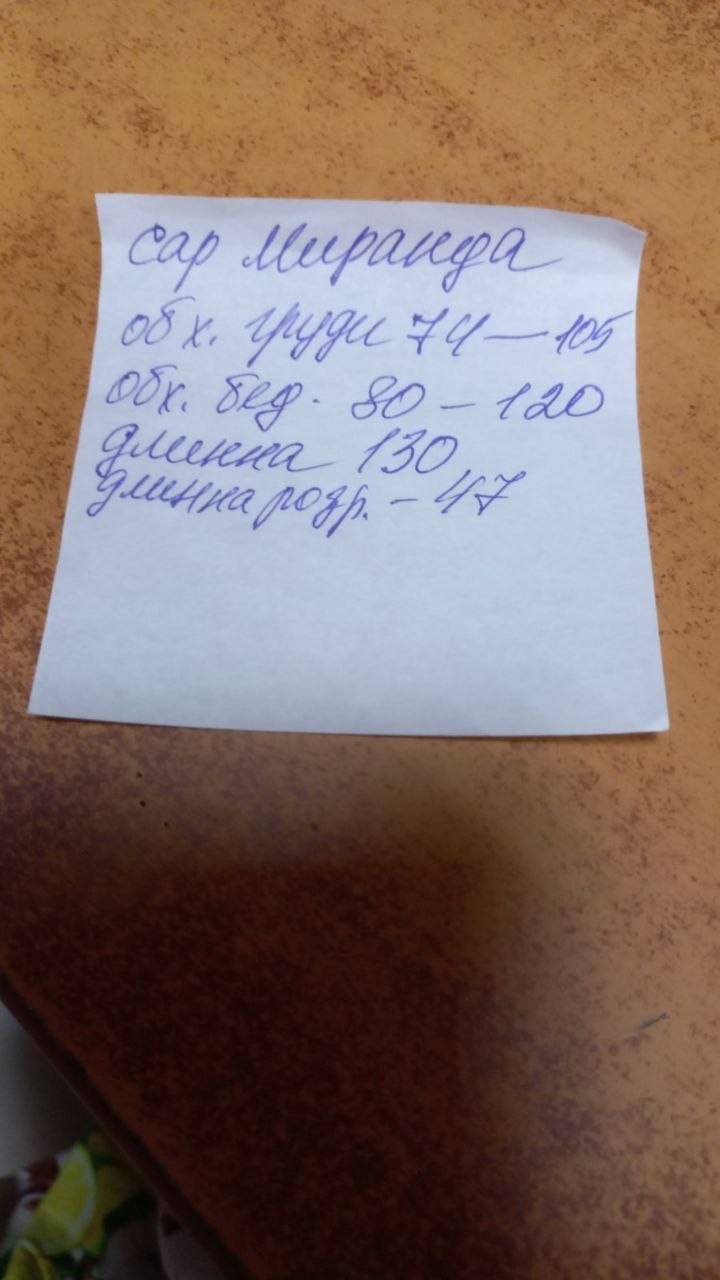 Сар Миранда
обх. груди 74 — 105
обх. бед. 80 – 120
длинна 130
длинна розр. – 47